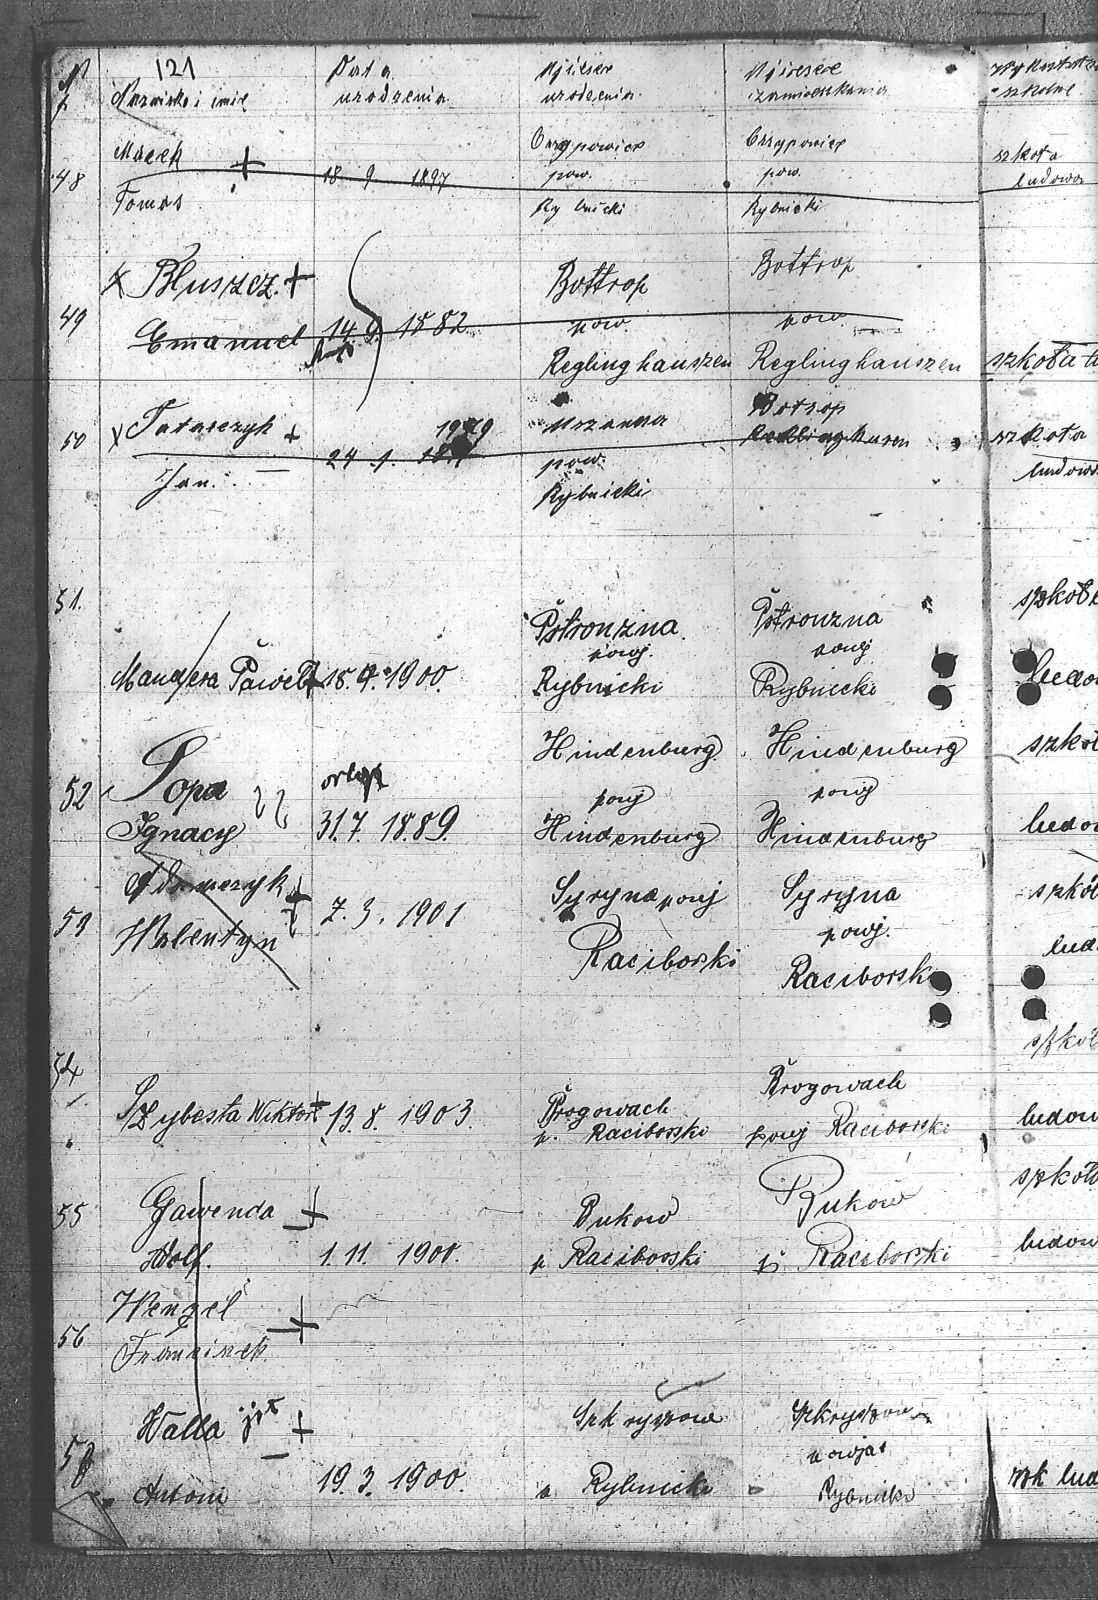 121
Nazwisko i imię Data urodzenia Miejsce urodzenia Miejsce zamieszkania szkolne
48 Macek Tomas 18 9 1897 pow. Rybnicki pow. Rybnicki szkoła ludowa
49 x Bluszcz + Emanuel 14. 9. 1882 Bottrop pow. Reglinghauszen Bottrop pow. Reglinghauszen szkoła
50 x Tatarczyk + Jan. 24. 1. 1879 Mszanna pow. Rybnicki Botrop szkoła ludow
51. Mandera Paweł 15. 4. 1900. Pstronzna powj. Rybnicki Pstronzna powj Rybnicki szkoł ludo
52 Popa Ignacy 31.7. 1889. Hindenburg powj Hindenburg Hindenburg powj Hindenburg szkoł ludo
53 Adamczyk Walentyn + 7. 3. 1901 Syryna powj Raciborski Syryna powj. Raciborski szkół lud
54 Szybesta Wiktor + 13. 8. 1903. Brogowach p. Raciborski Brogowach powj Raciborski szkoł ludow
55 Gawenda Wolf. + 1. 11. 1900. Bukow p Raciborski Buków p Raciborski szkoł ludow
56 Wenzel Franciszek +
58 Walla Antoni + 19. 3. 1900. Rybnicki Rybnicki szk lud